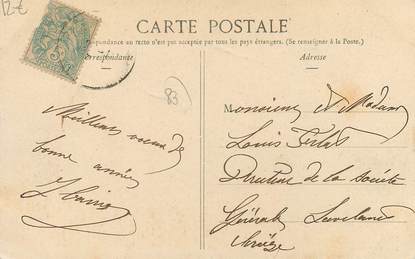 12€
CARTE POSTALE
respondance au recto n'est pas acceptée par tous les pays étrangers. (Se renseigner à la Poste.)
Correspondance
Adresse
83
Meilleurs voeux de
bonne année
Monsieur et Madame
Louis
Directeur de la Société
Générale